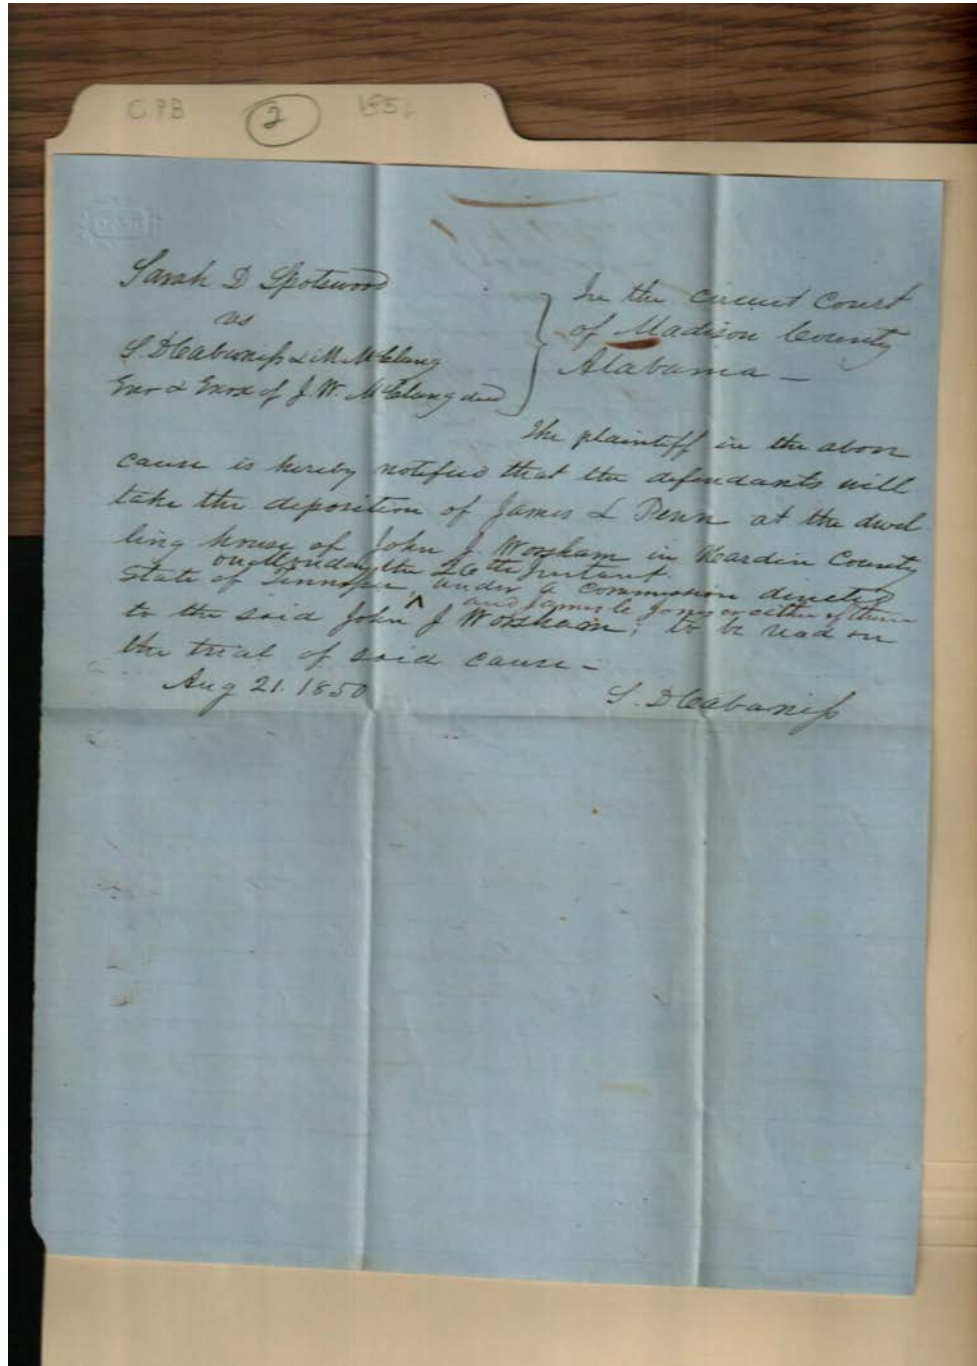 CPB 2 185
Sarah D Spotswood
vs
S. D Cabaniss & M. McClung
Exor & Exrx of J. W. McClung decd
In the circuit Court
of Madison County
Alabama —
The plaintiff in the above
cause is hereby notified that the defendants will
take the deposition of James L Penn at the dwel
ling house of John J Worsham in Hardin County
on Monday the 26th Instant
State of Tennessee, ^ under a commission directed
and James C Jones or either of them
to the said John J Worsham, to be read on
the trial of said cause —
Aug 21. 1850
S. D Cabaniss